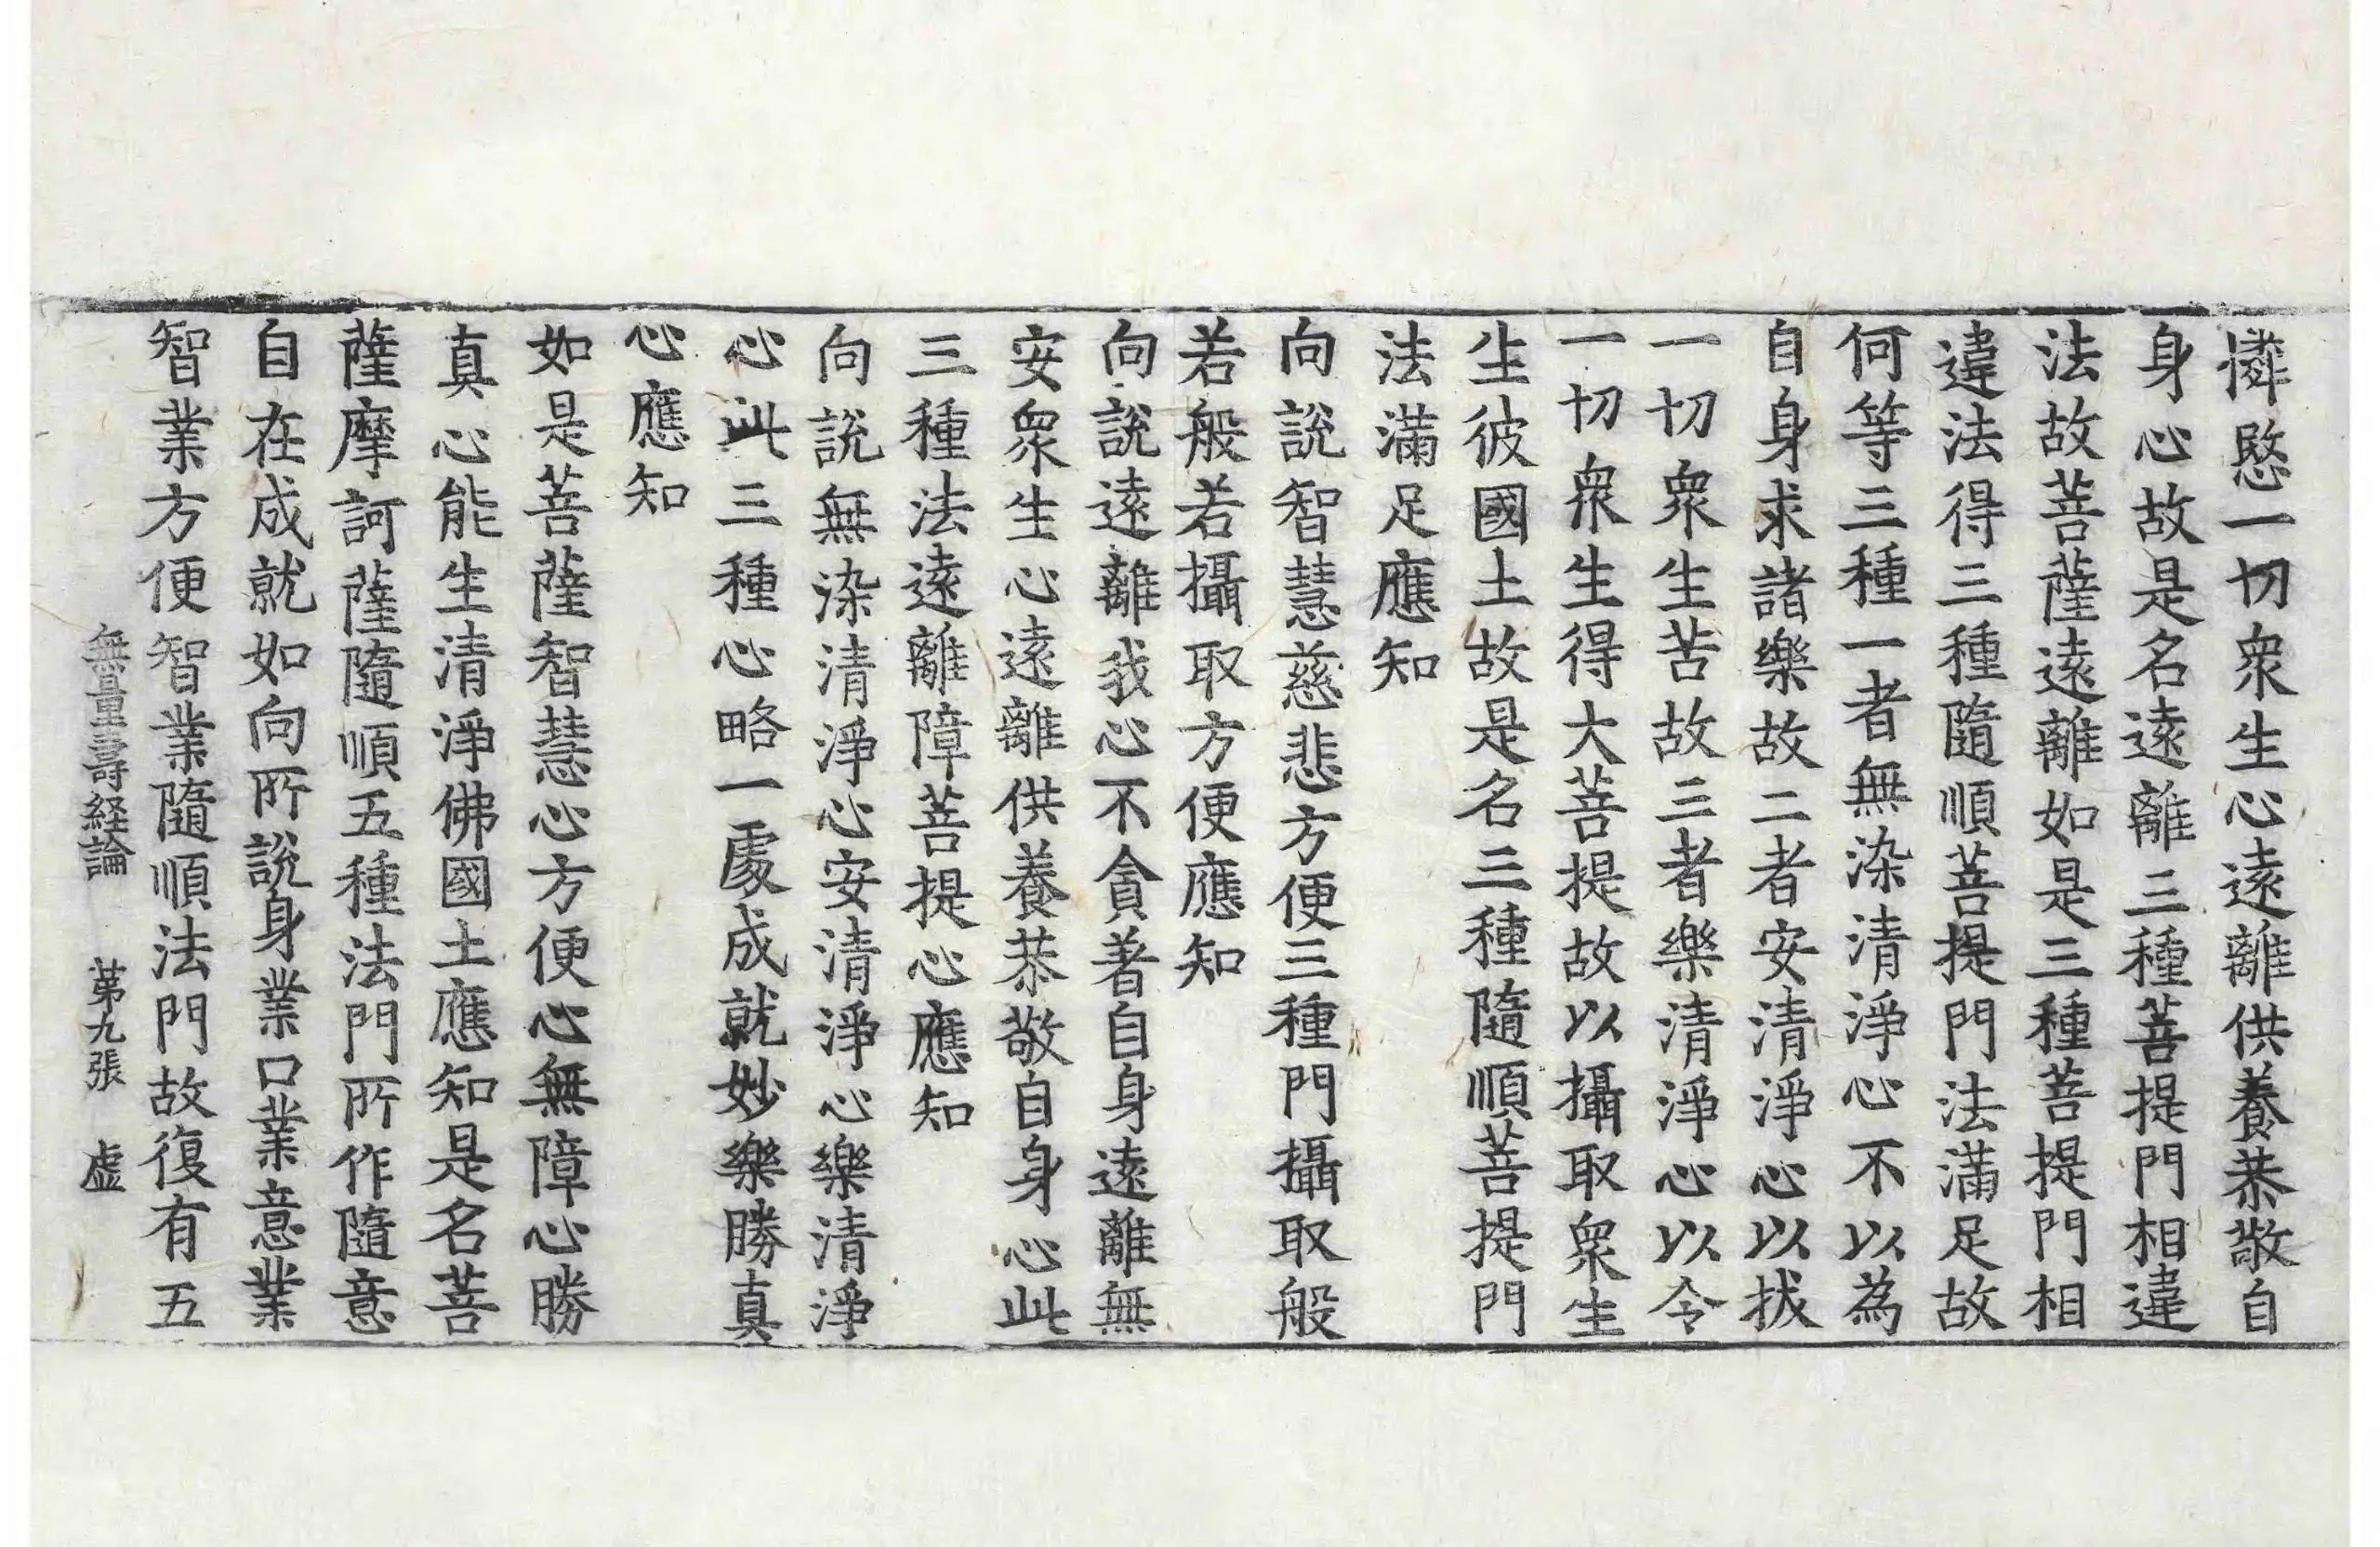 憐愍一切衆生心遠離供養恭敬自
身心故是名遠離三種菩提門相違
法故菩薩遠離如是三種菩提門相
違法得三種隨順菩提門法滿足故
何等三種一者無染清淨心不以為
自身求諸樂故二者安清淨心以拔
一切衆生苦故三者樂清淨心以令
一切衆生得大菩提故以攝取衆生
生彼國土故是名三種隨順菩提門
法滿足應知
向說智慧慈悲方便三種門攝取般
若般若攝取方便應知
向說遠離我心不貪著自身遠離無
安衆生心遠離供養恭敬自身心此
三種法遠離障菩提心應知
向說無染清淨心安清淨心樂清淨
心此三種心略一處成就妙樂勝真
心應知
如是菩薩智慧心方便心無障心勝
真心能生清淨佛國土應知是名菩
薩摩訶薩隨順五種法門所作隨意
自在成就如向所說身業口業意業
智業方便智業隨順法門故復有五
無量壽経論 第九張 虛